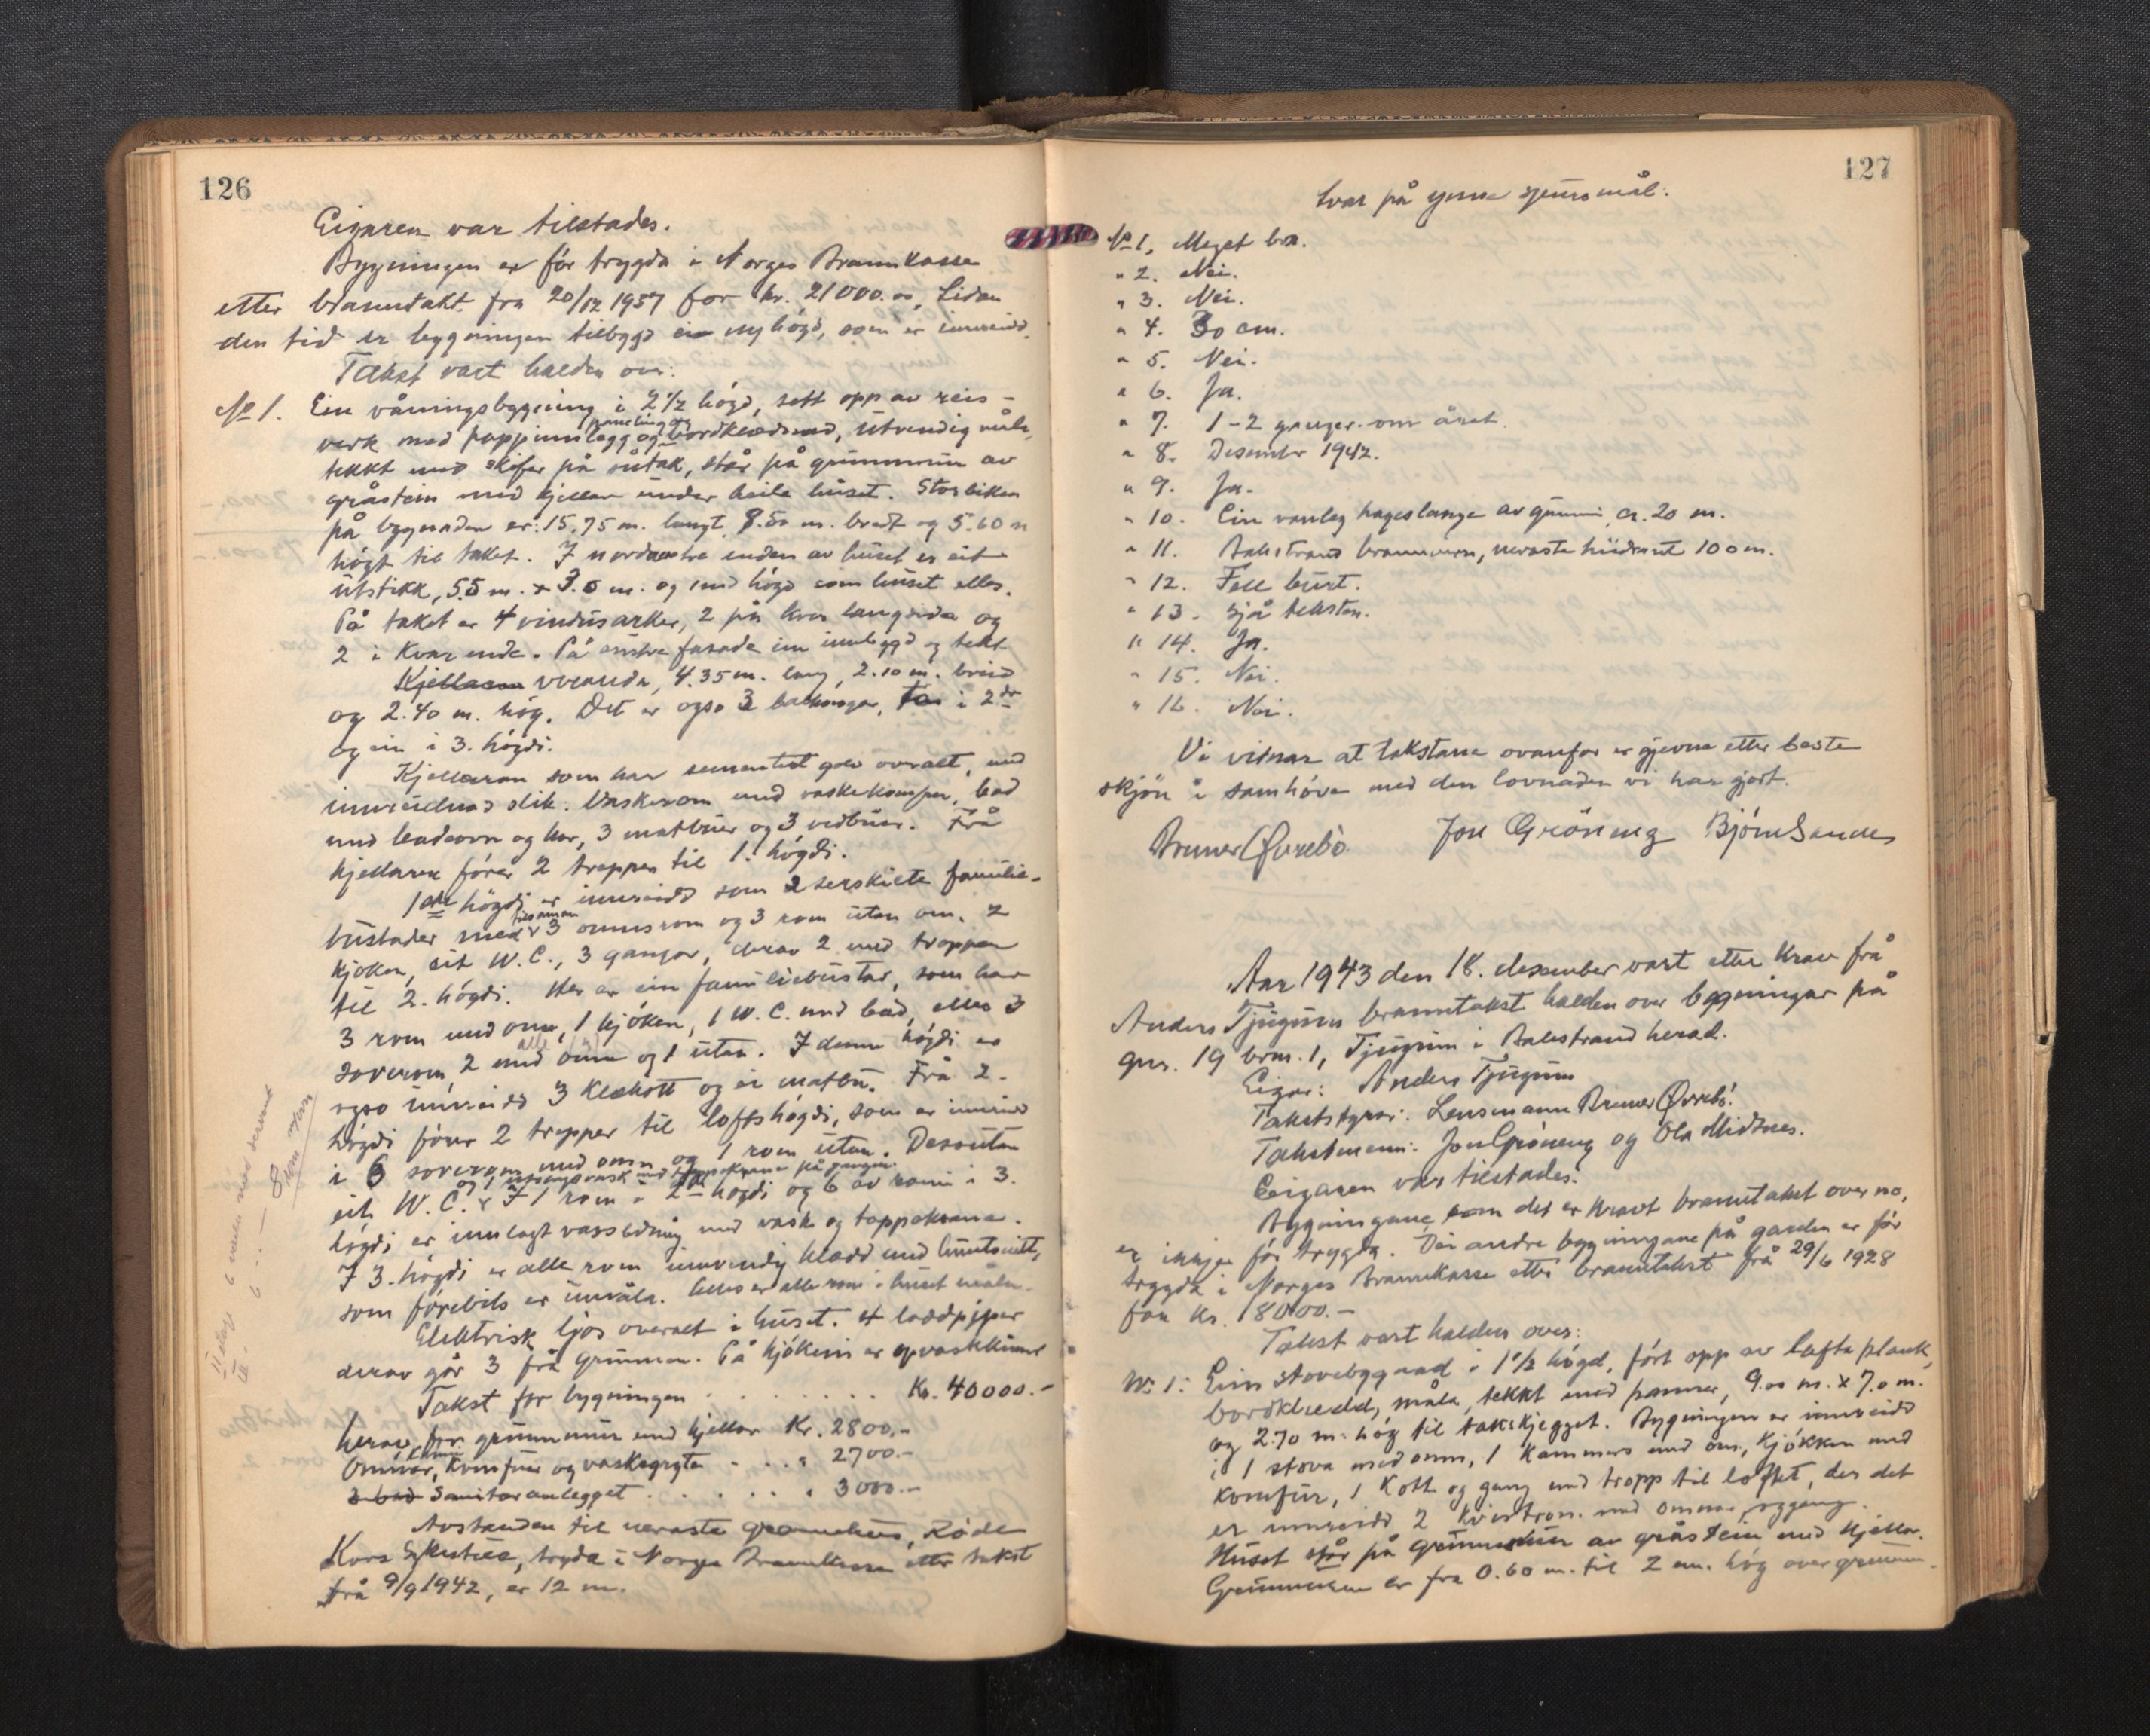 126
Eigaren var tilstades.
Bygningen er før trygda i Norges Brannkasse
etter branntakt fra 20/12 1937 for kr. 21000.00. Sidan
den tid er bygningen tilbygd ein ny høgd, som er innreidd.
Takst vart halden over:
No 1. Ein våningsbygning i 2 1/2 høgd, sett opp av reis-
verk med pappinnlegg og paneling og bordklednad, utvendig måla,
tekkt med skifer på sutak, står på grunnmur av
gråstein med kjellar under heile huset. Storleiken
på bygnaden er: 15.75 m. langt 8.50 m. bredt og 5.60 m
høgt til taket. I nordvestre enden av huset er eit
utstikk, 5.5 m. x 3.0 m. og med høgd som huset elles.
På taket er 4 vindusarker, 2 på kvar langside og
2 i kvar ende. På austre fasade ein innbygd og tekt
Kjellaren veranda, 4.35 m. lang, 2.10 m. breid
og 2.40 m. høg. Det er også 3 balkongar, to i 2dr
og ein i 3. høgdi.
Kjellaren som har sementert golv overalt, med
innreidnad slik: Vaskerom med vaskekomfyr, bad
med badeovn og kar, 3 matbuer og 3 vedbuer. Frå
kjellaren fører 2 trapper til 1. høgdi.
1ste høgdi er innreidd som 2 serskilte familie-
bustader med tilsaman 3 omnsrom og 3 rom utan omn. 2
kjøken, eit W.C., 3 gangar, derav 2 med trappen
til 2. høgdi. Her er ein familiebustad, som har
3 rom med omn, 1 kjøken, 1 W.C. med bad, elles 3
soverom, 2 med omn og 1 utan. I denne høgdi er
også innreidd 3 klekott og ei matbu. Frå 2.
høgdi fører 2 trapper til loftshøgdi, som er innreidd
i 6 soverom med omn og 1 rom utan. Dessutan
eit W.C. og 1 utslagsvask med tappekrane på gangen. I 1 rom i 2. høgdi og 6 av romi i 3.
høgdi er innlagt vassledning med vask og tappekrane.
I 3. høgdi er alle rom innvendig klædd med
som førebils er umåla. Elles er alle rom i huset måla.
Elektrisk ljos overalt i huset. 4 loddpiper
derav går 3 frå grunnen. På kjøkeni er opvaskkum
Takst for bygningen . . . . . . . Kr. 40000.-
herav for grunnmur med kjellar Kr. 2800.-
Omnar, komfur og vaskegryte . . . . 2700.-
2 bad Sanitæranlegget . . . . . . 3000.-
Avstanden til næraste grannehus, Røde
Kors Sjukestue, trygda i Norges Brannkasse etter takst
frå 9/9 1942, er 12 m.
127
Svar på ymse spursmål:
No 1. Meget bra.
" 2. Nei.
" 3. Nei.
" 4. 30 cm.
" 5. Nei.
" 6. Ja.
" 7. 1-2 ganger om året.
" 8. Desember 1942.
" 9. Ja.
" 10. Ein vanleg hageslange av gummi, ca. 20 m.
" 11. Balestrand brannvern, næraste hydrant 100 m.
" 12. Fell burt.
" 13. Sjå teksten.
" 14. Ja.
" 15. Nei.
" 16. Nei.
Vi vitnar at takstane ovanfor er gjevne etter beste
skjøn i samhøve med den lovnaden vi har gjort.
Bryner Øvrebø Jon Grøneng Bjørn Sandes
Aar 1943 den 18. desember vart etter krav frå
Anders Tjugum branntakst halden over bygningar på
gnr. 19 brnr. 1, Tjugum i Balestrand herad.
Eigar: Anders Tjugum
Takststyrar: Lensmann Bryner Øvrebø.
Takstmenn: Jon Grøneng og Ola Midtnes.
Eigaren var tilstades.
Bygningane som det er kravt branntakst over no,
er ikkje før trygda. Dei andre bygningane på garden er før
trygda i Norges Brannkasse etter branntakst frå 29/6 1928
for kr. 18000.-
Takst vart halden over:
No 1: Ein stovebygnad i 1 1/2 høgd, ført opp av lafta plank,
bordkledd, måla, tekkt med panner, 9.00 m. x 7.0 m.
og 2.70 m. høg til takskjegget. Bygningen er innreidd
i 1 stova med omn, 1 kammers med omn, kjøkken med
komfur, 1 kott og gang med tropp til loftet, der det
er innreidd 2 kvistrom med omnar og gang.
Huset står på grunnmur av gråstein med kjellar.
Grunnmuren er fra 0.60 m. til 2 m. høg over grunnen.